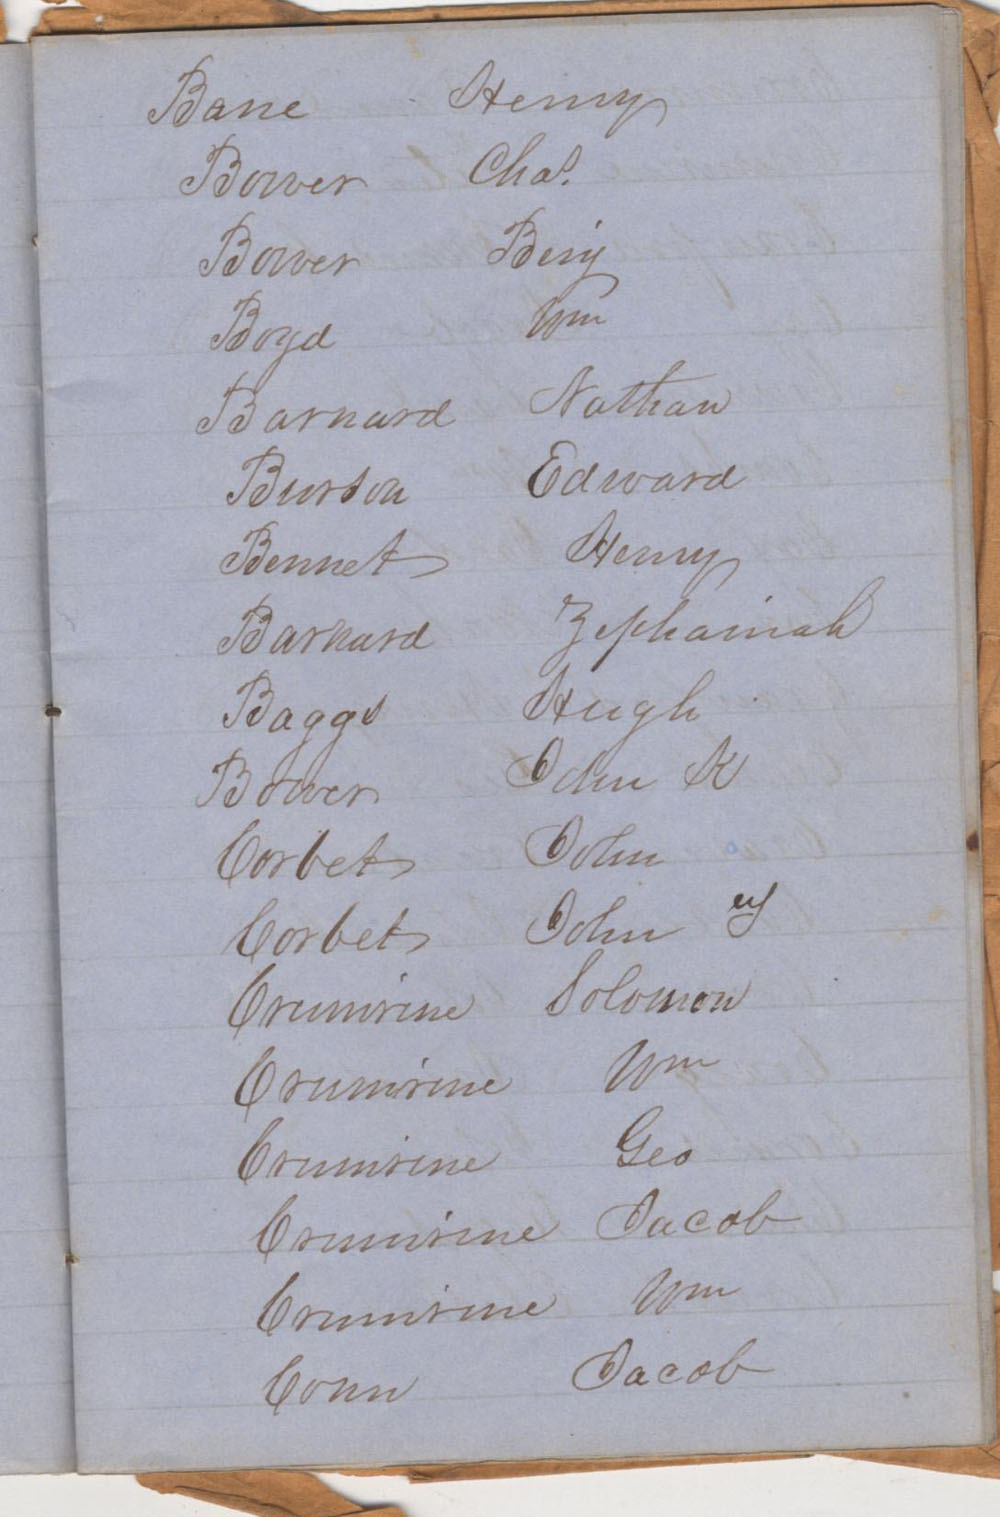 Bane Henry
Bower Chas.
Bower Benj
Boyd Wm
Barnard Nathan
Burson Edward
Bennet Henry
Barnard Zephainah
Baggs Hugh
Bower John K
Corbet John
Corbet John
Crumrine Solomon
Crumrine Wm
Crumrine Geo
Crumrine Jacob
Crumrine Wm
Conn Jacob